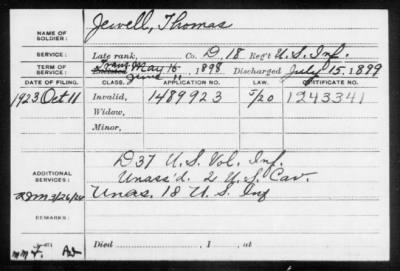 NAME OF SOLDIER: Jewell, Thomas
SERVICE: Late rank, Co. D, 18 Reg't U.S. Inf.
TERM OF SERVICE: Enlisted May 16, 1898 Discharged July 15, 1899
June 11
DATE OF FILING. CLASS. APPLICATION NO. LAW. CERTIFICATE NO.
1923 Oct 11 Invalid, 1489923 5/20 1243341
Widow,
Minor,
ADDITIONAL SERVICES: D 37 U.S. Vol. Inf.
Unass'd. 2 U.S. Cav.
Unas. 18 U.S. Inf
REMARKS:
Died , 1 , at